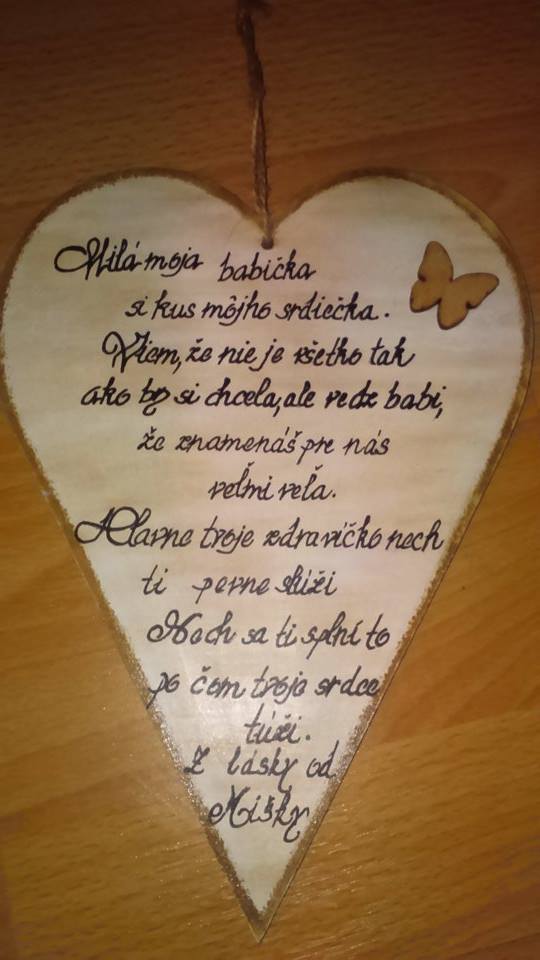 Milá moja babička
si kus môjho srdiečka.
Viem, že nie je všetko tak
ako by si chcela, ale vedz babi,
že znamenáš pre nás
veľmi veľa.
Hlavne tvoje zdravíčko nech
ti pevne slúži
Nech sa ti splní to
po čom tvoje srdce
túži.
Z lásky od
Mišky